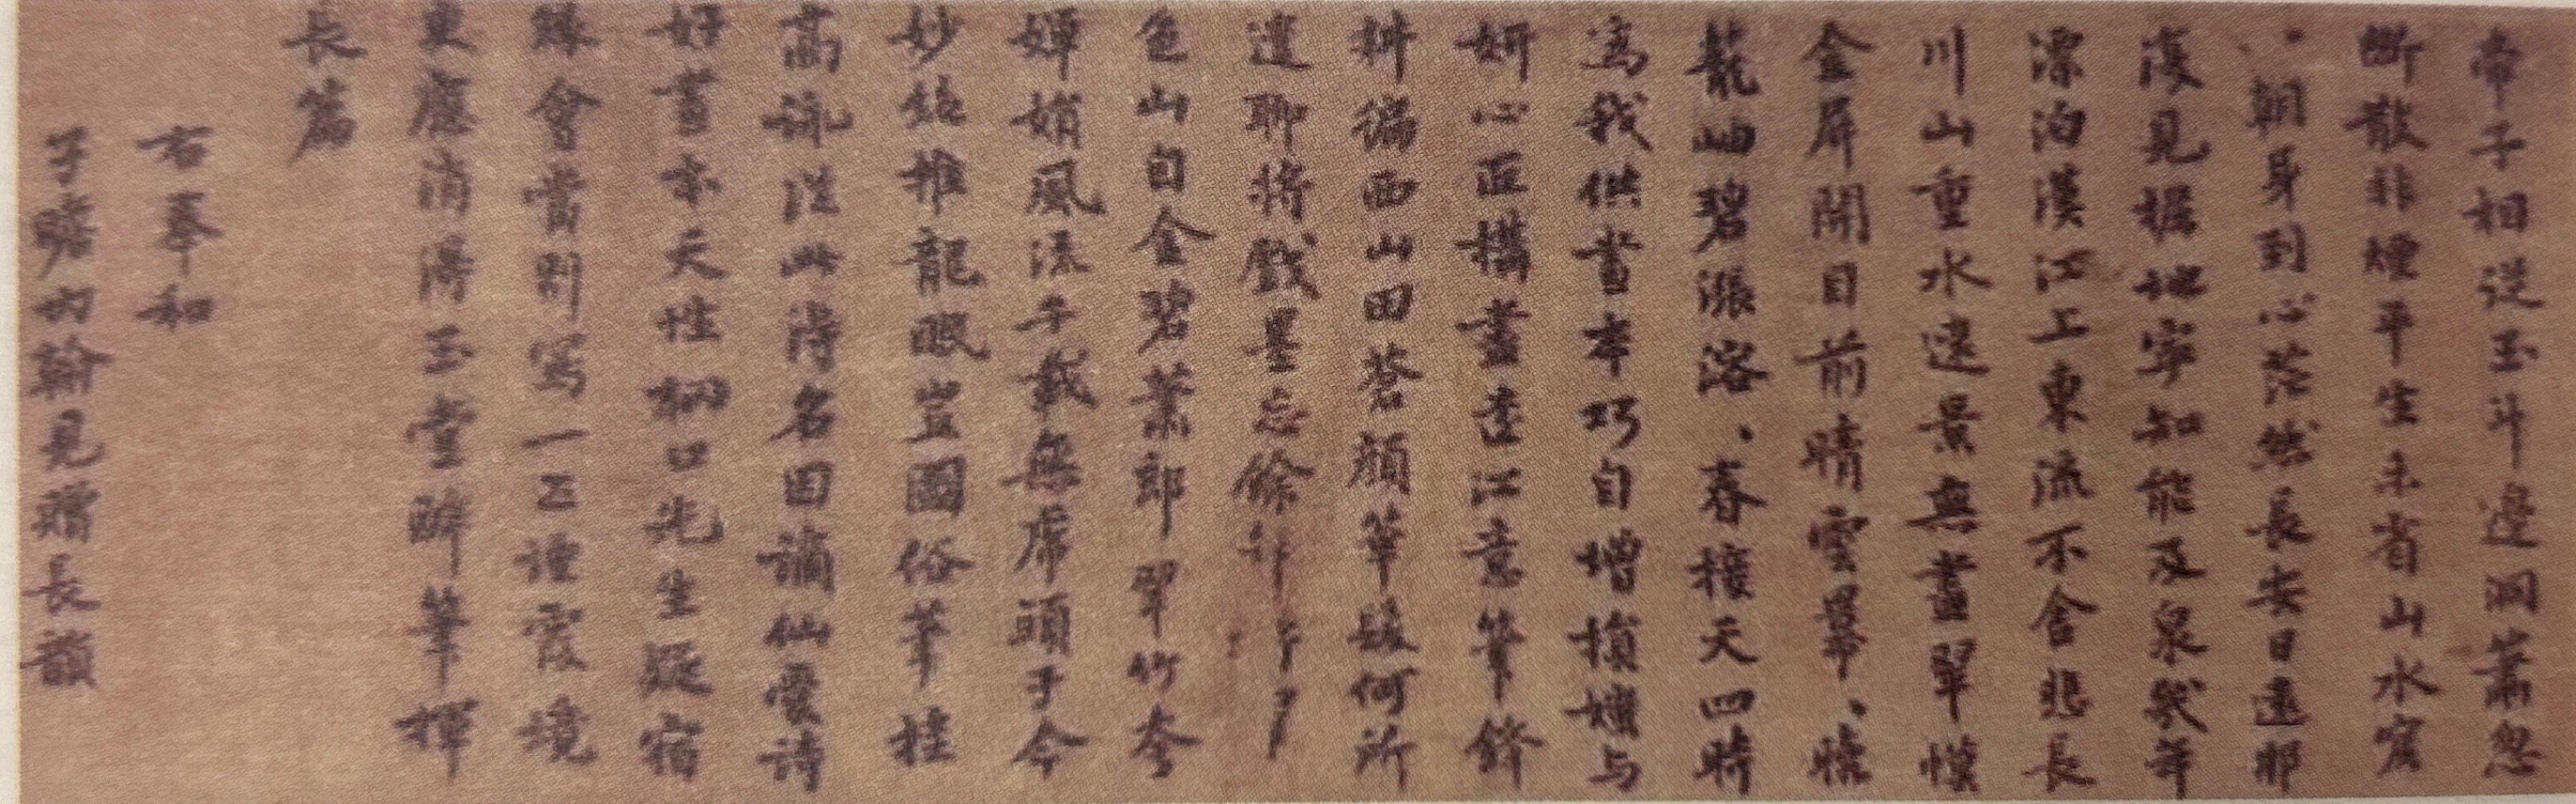 帝子相從玉斗邊洞蕭忽
斷散非煙平生未省山水窟
朝身到心茫然長安日遠那
復見掘地寧知能及泉幾年
漂泊漢江上東流不舍悲長
川山重水遠景無盡翠幙
金屏開目前晴雲冪、曉
籠岫碧漲溶、春接天四時
爲我供畫本巧自增損媸与
妍心匠構盡遠江意筆鋒
耕徧西山田蒼顏華髮何所
遣聊將戲墨忘餘年
色山自金碧蕭郎翠竹夸
嬋娟風流千載無虎頭于今
妙絕推龍眠豈圖俗筆挂
高詠從此得名因謫仙愛詩
好畫本天性輞口先生疑宿
緣會當別寫一匹煙霞境
更應消得玉堂醉筆揮
長篇
右奉和
子瞻內翰見贈長韻